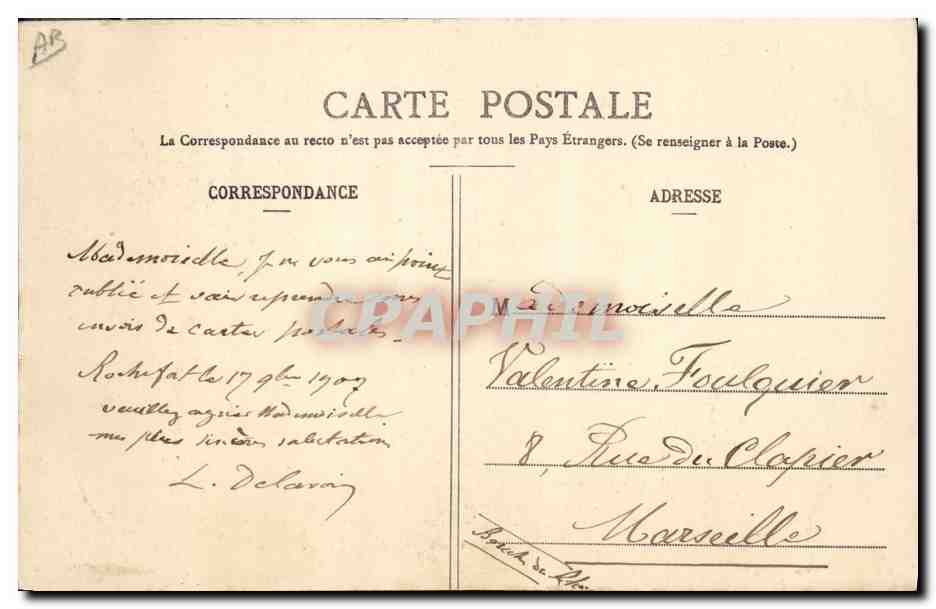 AB
CARTE POSTALE
La Correspondance au recto n'est pas acceptée par tous les Pays Étrangers. (Se renseigner à la Poste.)
CORRESPONDANCE
Mademoiselle, je ne vous ai point
oublié et vais reprendre mes
envois de cartes postales.
Rochefort le 17 9bre 1907
veuillez agréer Mademoiselle
mes plus sincères salutations
L.
ADRESSE
Mademoiselle
Valentine Foulquier
8, Rue du Clapier
Marseille
Bouches du Rhône
CPAPHIL